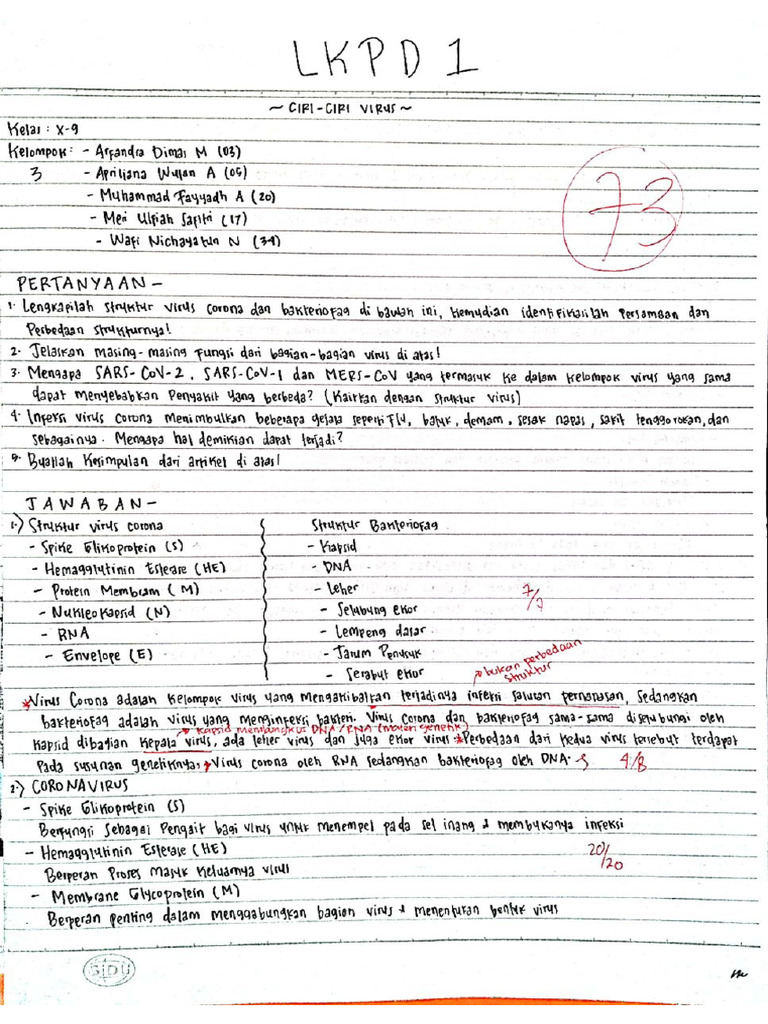 LKPD 1
~ CIRI-CIRI VIRUS ~
Kelas : X-9
Kelompok : - Arfandra Dimas M (03)
3 - Apriliana Wulan A (05)
- Muhammad Fayyadh A (20)
- Meri Ulfiah Safitri (17)
- Wafi Nichayatun N (34)
73
PERTANYAAN -
1. Lengkapilah struktur virus corona dan bakteriofag di bawah ini, kemudian identifikasilah Persamaan dan
Perbedaan strukturnya!
2. Jelaskan masing-masing fungsi dari bagian-bagian virus di atas!
3. Mengapa SARS-CoV-2, SARS-CoV-1 dan MERS-CoV yang termasuk ke dalam kelompok virus yang sama
dapat menyebabkan Penyakit yang berbeda? (Kaitkan dengan struktur virus)
4. Infeksi virus corona menimbulkan beberapa gejala seperti Flu, batuk, demam, sesak napas, sakit tenggorokan, dan
sebagainya. Mengapa hal demikian dapat terjadi?
5. Buatlah Kesimpulan dari artikel di atas!
JAWABAN -
1.) Struktur virus corona
- Spike Glikoprotein (S)
- Hemagglutinin Esterase (HE)
- Protein Membram (M)
- Nukleokapsid (N)
- RNA
- Envelope (E)
Struktur Bakteriofag
- Kapsid
- DNA
- Leher
- Selubung ekor
- Lempeng dasar
- Jarum Penusuk
- Serabut ekor
7/7
bukan perbedaan
struktur
Virus Corona adalah kelompok virus yang mengakibatkan terjadinya infeksi saluran pernapasan, sedangkan
bakteriofag adalah virus yang menginfeksi bakteri. Virus corona dan bakteriofag sama-sama diselubungi oleh
kapsid membungkus DNA/RNA (materi genetik)
kapsid dibagian kepala virus, ada leher virus dan juga ekor virus. Perbedaan dari kedua virus tersebut terdapat
pada susunan genetiknya, Virus corona oleh RNA sedangkan bakteriofag oleh DNA.
4/8
2.) CORONAVIRUS
- Spike Glikoprotein (S)
Berfungsi sebagai Pengait bagi virus untuk menempel pada sel inang & membukanya infeksi
- Hemagglutinin Esterase (HE)
Berperan Proses masuk keluarnya virus
20/20
- Membrane Glycoprotein (M)
Berperan penting dalam menggabungkan bagian virus & menentukan bentuk virus
SIDU